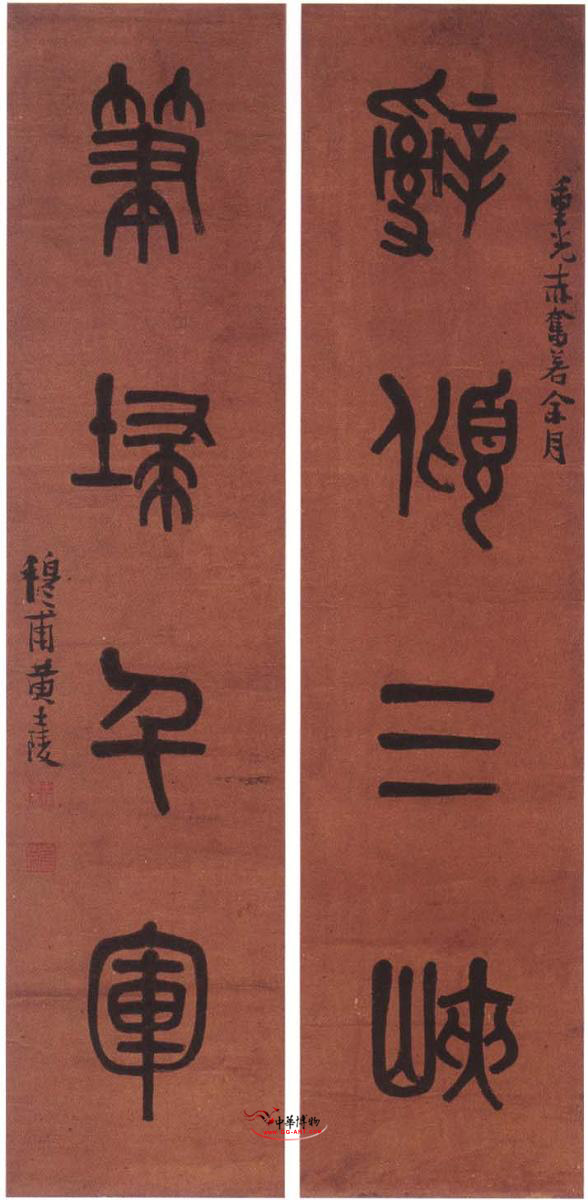 重光赤奮若余月
辭傾三峽
筆埽千軍
穆甫黃士陵
中華博物
www.GG-ART.COM